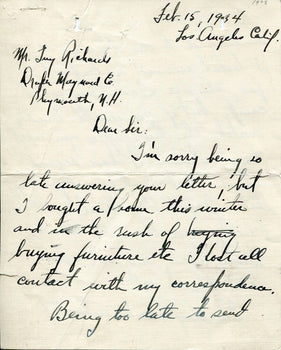 Feb. 15, 1944
Los Angeles Calif.
Mr. Richards
Draper Maynard Co
Plymouth, N.H.
Dear Sir:
I'm sorry being so
late answering your letter, but
I bought a home this winter
and in the rush of buying
buying furniture etc I lost all
contact with my correspondence.
Being too late to send